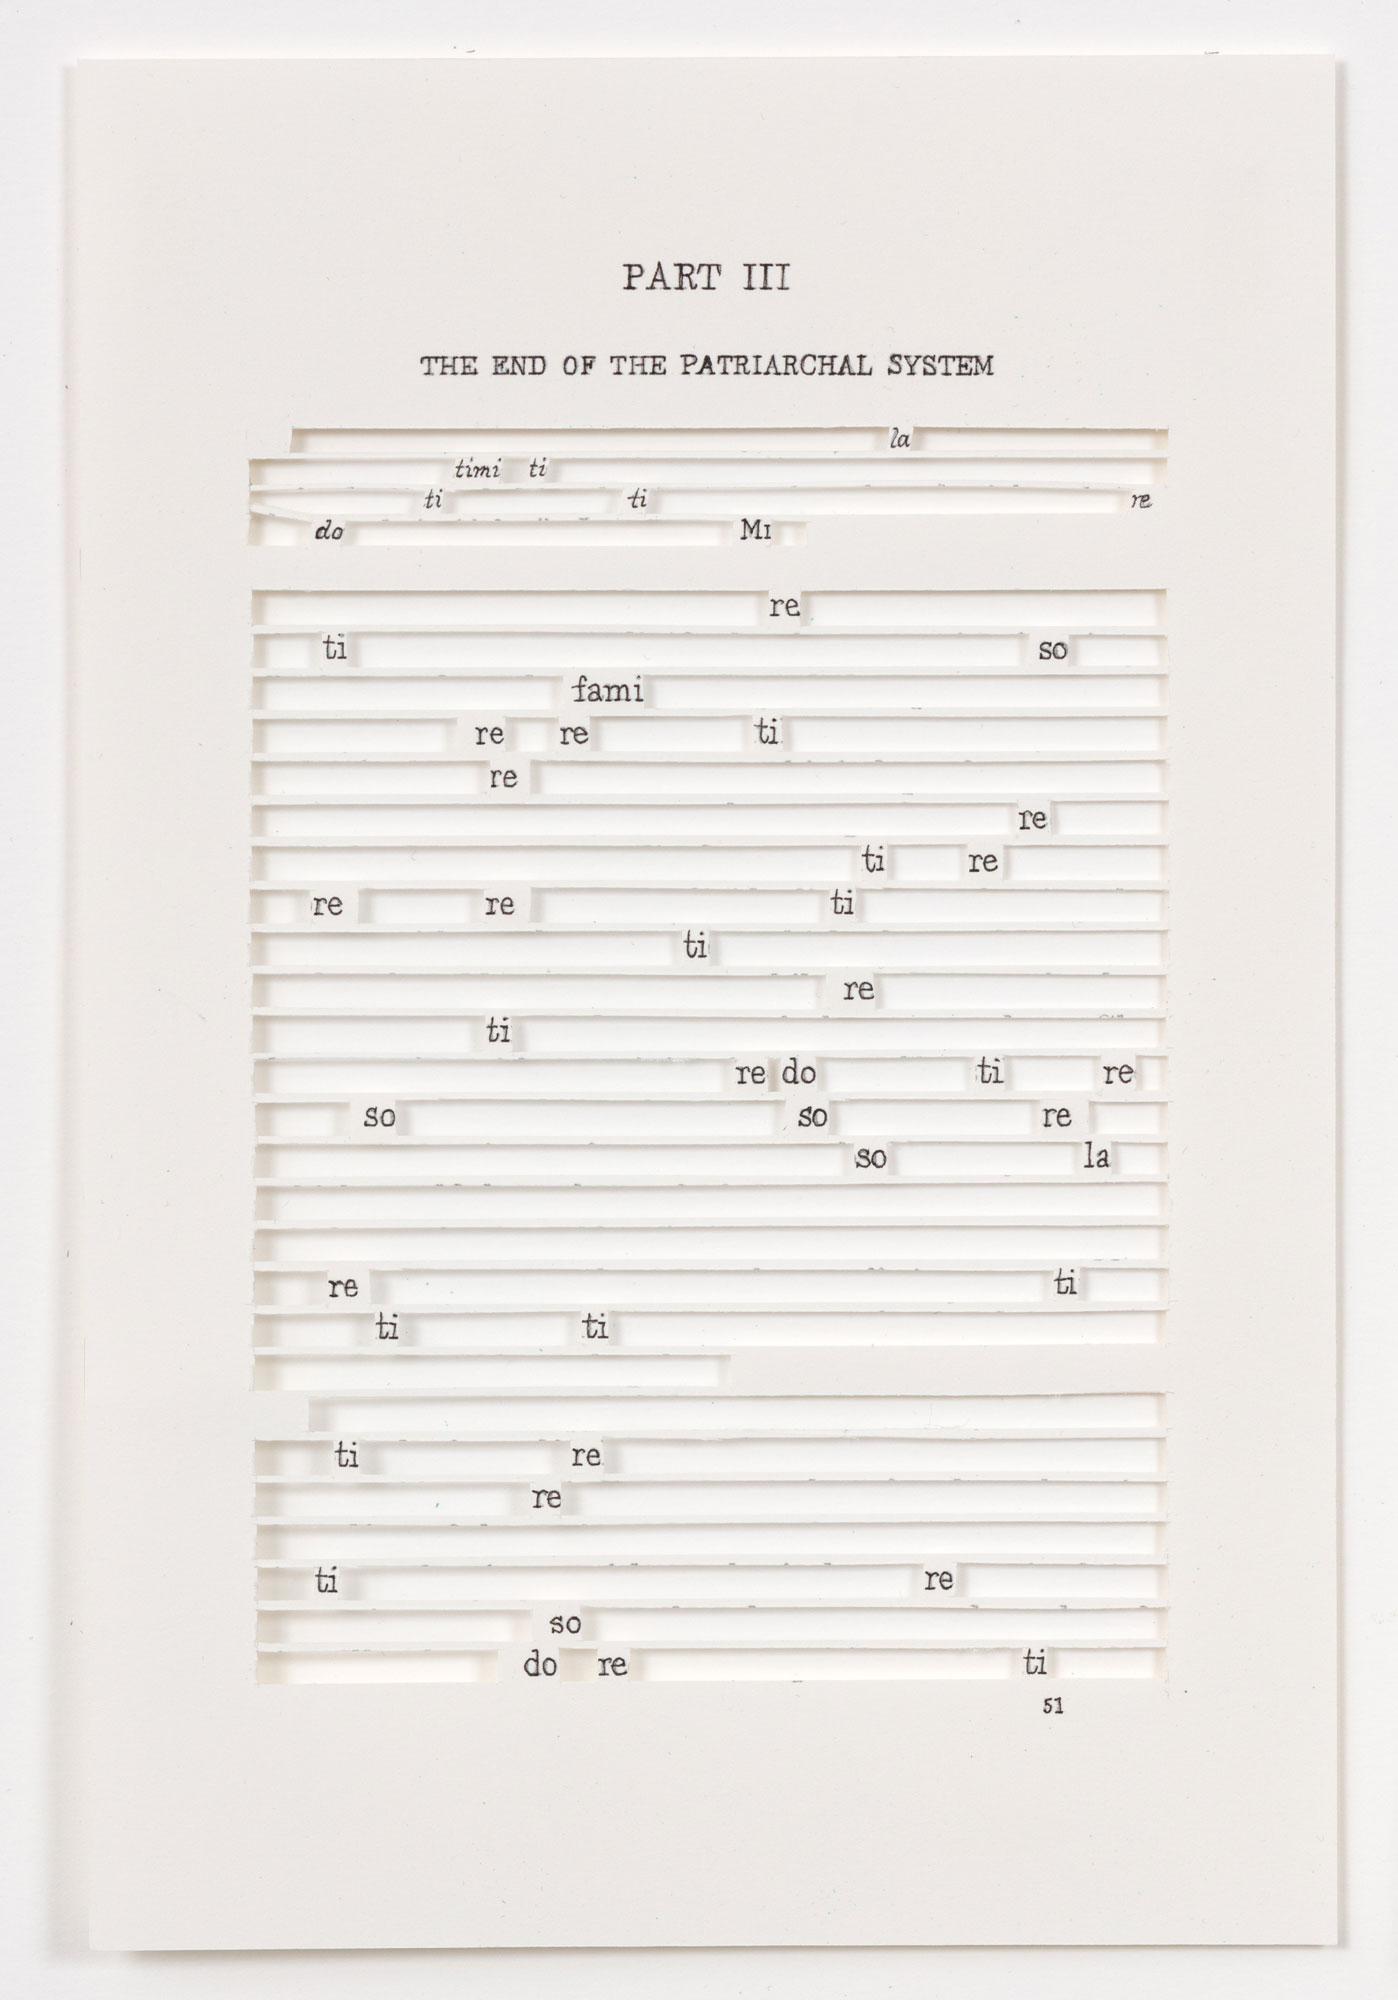 PART III
THE END OF THE PATRIARCHAL SYSTEM
la
timi ti
ti ti re
do MI
re
ti so
fami
re re ti
re
re
ti re
re re ti
ti
re
ti
re do ti re
so so re
so la
re ti
ti ti
ti re
re
ti re
so
do re ti
51